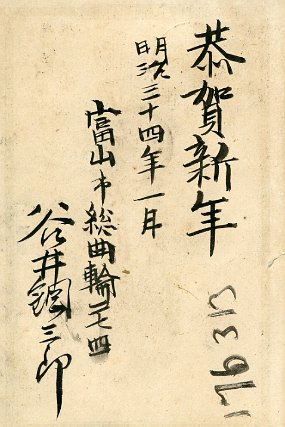 恭賀新年
明治三十四年一月
富山市総曲輪二七四
谷井鋼三郎
176 3 13